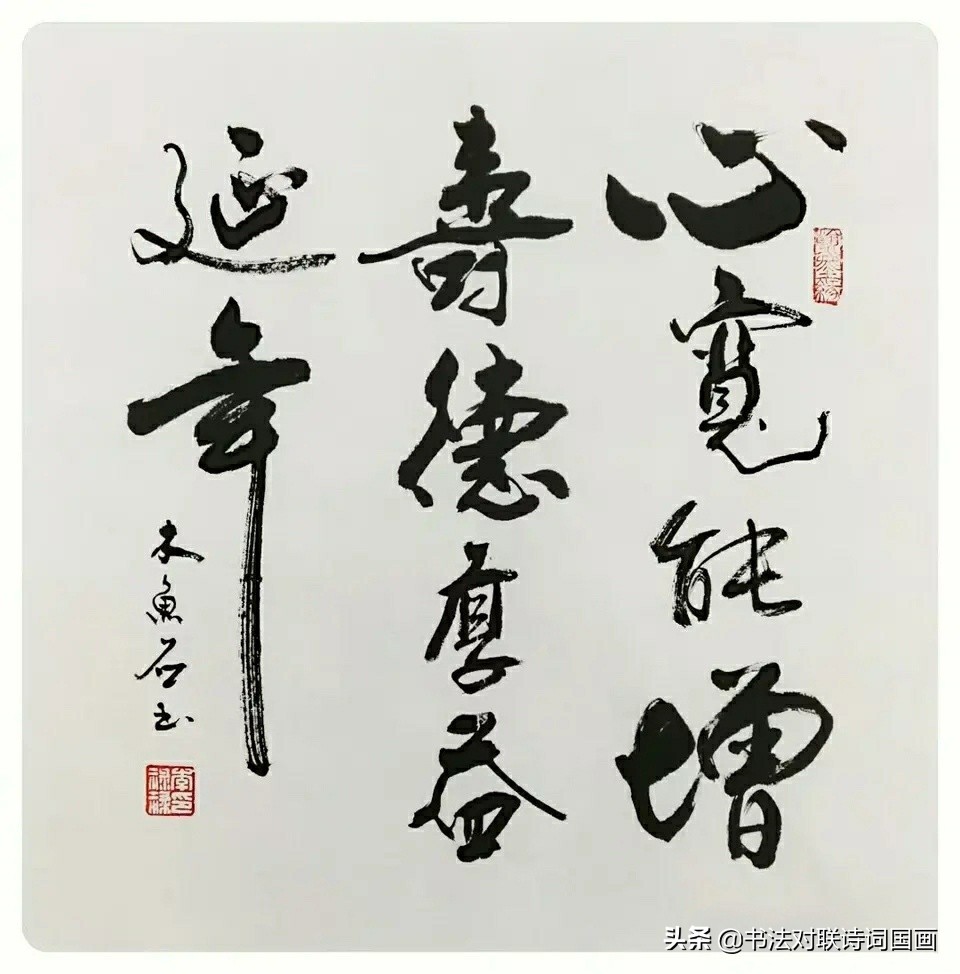 心寬能增
壽德厚益
延年
木魚石书
头条 @书法对联诗词国画